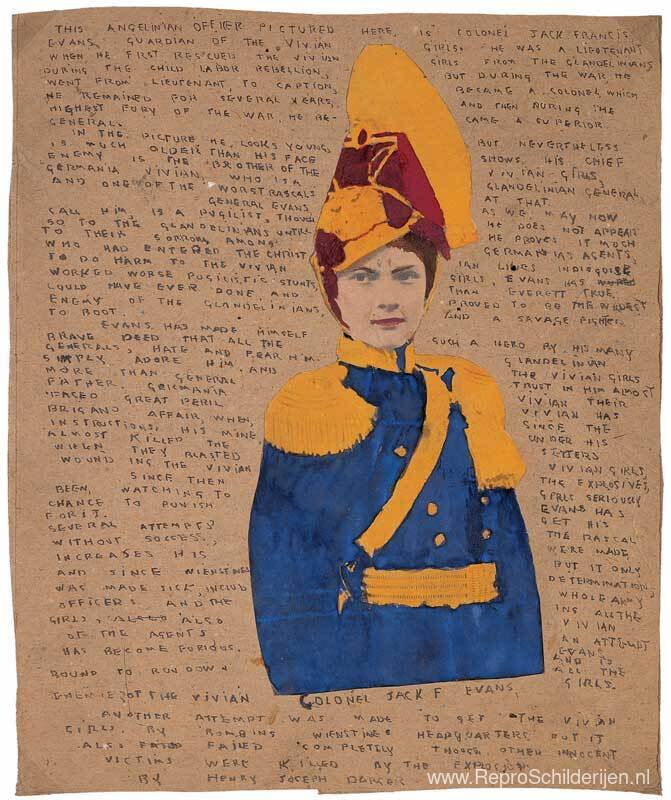 THIS ANGELINIAN OFFICER PICTURED HERE, IS COLONEL JACK FRANCIS
EVANS, GUARDIAN OF THE VIVIAN GIRLS. HE WAS A LIEUTENANT
WHEN HE FIRST RESCUED THE VIVIAN GIRLS FROM THE GLANDELINIANS
DURING THE CHILD LABOR REBELLION, BUT DURING THE WAR HE
WENT FROM LIEUTENANT, TO CAPTION, BECAME A COLONEL WHICH
HE REMAINED FOR SEVERAL YEARS, AND THEN DURING THE
HIGHEST FURY OF THE WAR, HE BE- CAME A SUPERIOR
GENERAL.
IN THE PICTURE HE LOOKS YOUNG, BUT NEVERTHELESS
IS MUCH OLDER THAN HIS FACE SHOWS. HIS CHIEF
ENEMY IS THE BROTHER OF THE VIVIAN GIRLS,
GERMANIA VIVIAN, WHO IS A GLANDELINIAN GENERAL
AND ONE OF THE WORST RASCALS AT THAT.
GENERAL EVANS AS WE MAY NOW
CALL HIM, IS A PUGILIST, THOUGH HE DOES NOT APPEAR
SO TO THE GLANDELINIANS UNTIL HE PROVES IT MUCH
TO THEIR SORROW, AMONG GERMANIAS AGENTS,
WHO HAD ENTERED THE CHRIST IAN LINES INDISGUISE
TO DO HARM TO THE VIVIAN GIRLS, EVANS HAS
WORKED WORSE PUGILISTIC STUNTS, THAN EVERETT TRUE,
COULD HAVE EVER DONE AND PROVED TO BE THE WILDEST
ENEMY OF THE GLANDELINIANS, AND A SAVAGE FIGHTER
TO BOOT.
EVANS HAS MADE HIMSELF SUCH A HERO BY HIS MANY
BRAVE DEED THAT ALL THE GLANDELINIAN
GENERALS, HATE AND FEAR HIM. THE VIVIAN GIRLS
SIMPLY ADORE HIM, AND TRUST IN HIM ALMOST
MORE THAN GENERAL VIVIAN THEIR
FATHER. GERMANIA VIVIAN HAS
FACED GREAT PERIL SINCE THE
BRIGAND AFFAIR, WHEN, UNDER HIS
INSTRUCTIONS, HIS MINE SETTERS
ALMOST KILLED THE VIVIAN GIRLS
WHEN THEY BLASTED THE EXPLOSIVES,
WOUNDING THE VIVIAN GIRLS SERIOUSLY
SINCE THEN EVANS HAS
BEEN, WATCHING TO GET HIS
CHANCE TO PUNISH THE RASCAL
FOR IT.
SEVERAL ATTEMPTS WERE MADE
WITHOUT SUCCESS, BUT IT ONLY
INCREASES HIS DETERMINATION,
AND SINCE WIENSTINES WHOLE ARMY
WAS MADE SICK, INCLUD ING ALL THE
OFFICERS AND THE VIVIAN
GIRLS, ALSO AN ATTEMPT
OF THE AGENTS EVANS
HAS BECOME FURIOUS. AND IS
BOUND TO RUN DOWN ALL THE
ENEMIES OF THE VIVIAN GIRLS.
COLONEL JACK F EVANS.
ANOTHER ATTEMPT WAS MADE TO GET THE VIVIAN
GIRLS BY BOMBING WIENSTINES HEADQUARTERS BUT IT
ALSO FAILED COMPLETELY THOUGH OTHER INNOCENT
VICTIMS WERE KILLED BY THE EXPLOSION
BY HENRY JOSEPH DARGER
www.ReproSchilderijen.nl